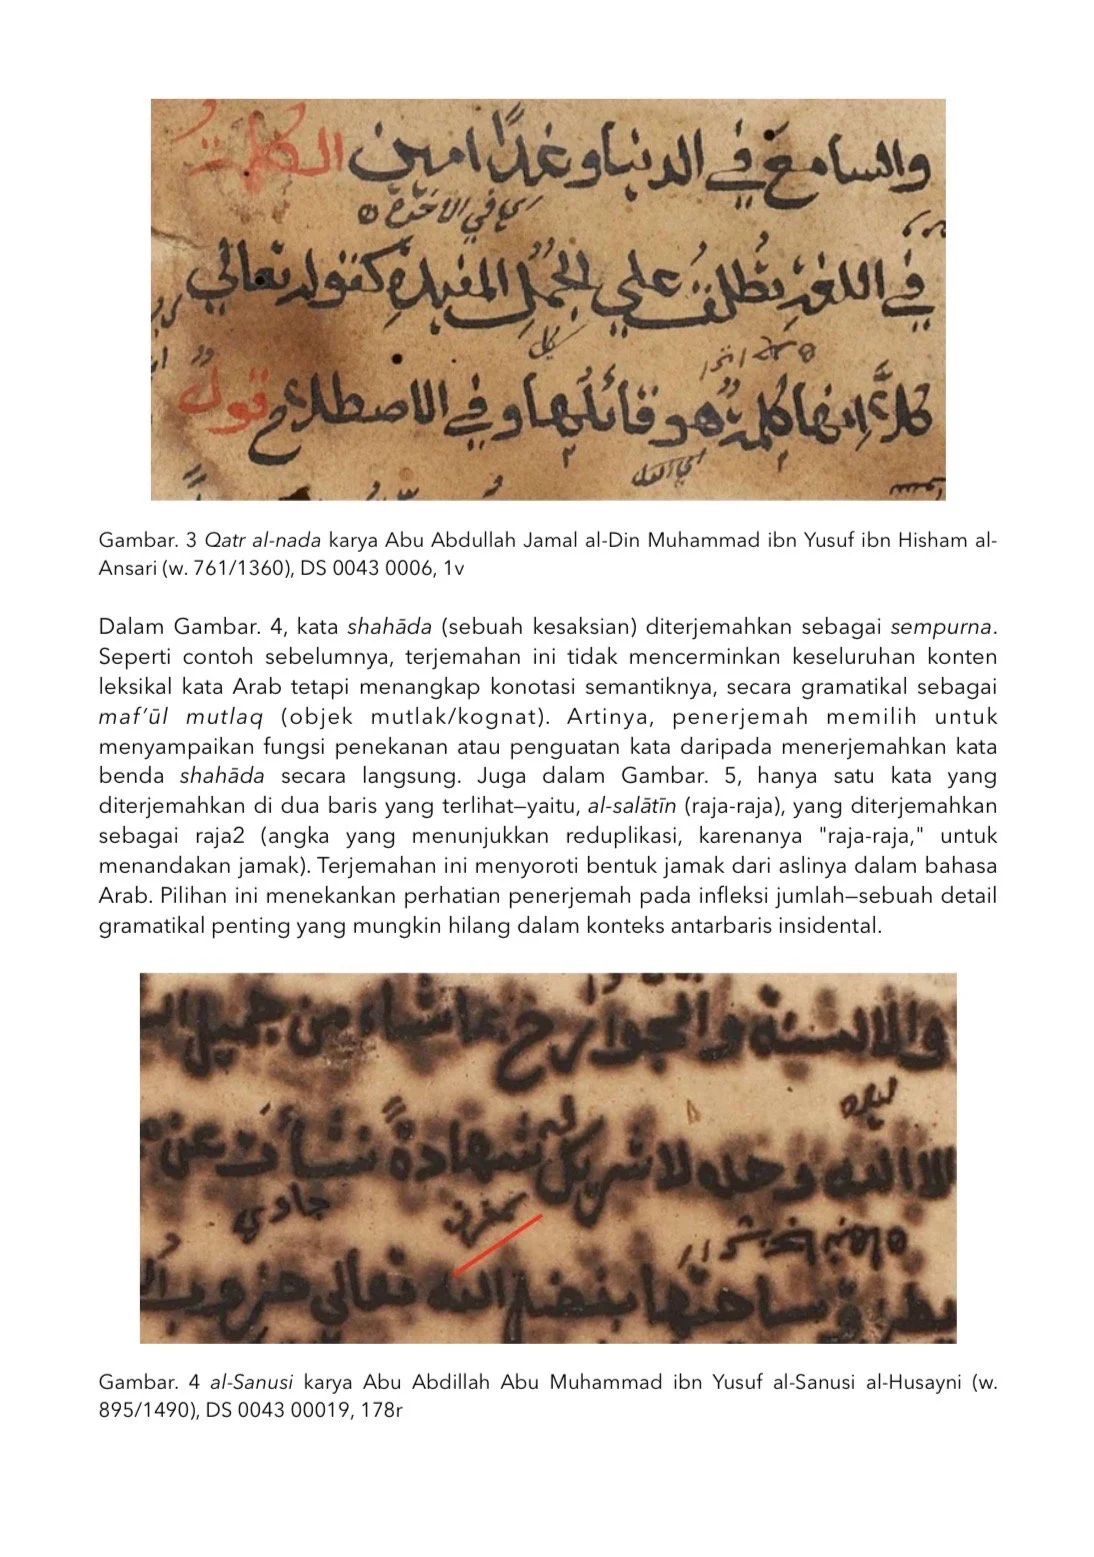 والسامع في الدنيا وغدًا امين الكلمة
اي في الاخرة
في اللغة تُطلق علي الجُمَلِ المفيدةِ كقوله تعالي
كلَّا اِنها كلمةٌ هو قائلُها وفي الاصطلاح قولٌ
Gambar. 3 Qatr al-nada karya Abu Abdullah Jamal al-Din Muhammad ibn Yusuf ibn Hisham al-
Ansari (w. 761/1360), DS 0043 0006, 1v
Dalam Gambar. 4, kata shahāda (sebuah kesaksian) diterjemahkan sebagai sempurna.
Seperti contoh sebelumnya, terjemahan ini tidak mencerminkan keseluruhan konten
leksikal kata Arab tetapi menangkap konotasi semantiknya, secara gramatikal sebagai
maf’ūl mutlaq (objek mutlak/kognat). Artinya, penerjemah memilih untuk
menyampaikan fungsi penekanan atau penguatan kata daripada menerjemahkan kata
benda shahāda secara langsung. Juga dalam Gambar. 5, hanya satu kata yang
diterjemahkan di dua baris yang terlihat—yaitu, al-salātīn (raja-raja), yang diterjemahkan
sebagai raja2 (angka yang menunjukkan reduplikasi, karenanya "raja-raja," untuk
menandakan jamak). Terjemahan ini menyoroti bentuk jamak dari aslinya dalam bahasa
Arab. Pilihan ini menekankan perhatian penerjemah pada infleksi jumlah—sebuah detail
gramatikal penting yang mungkin hilang dalam konteks antarbaris insidental.
والالسنة والجوارح بماشاء من جميل
لا الله وحده لا شريك له شهادةً نشأت عن
جادي
ساحتها بفضل الله تعالي
Gambar. 4 al-Sanusi karya Abu Abdillah Abu Muhammad ibn Yusuf al-Sanusi al-Husayni (w.
895/1490), DS 0043 00019, 178r